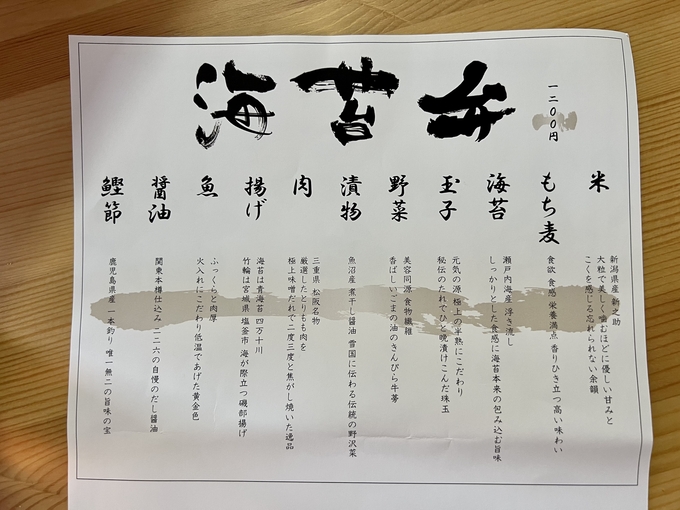 海苔弁
一二〇〇円
米
新潟県産 新之助
大粒で美しく噛むほどに優しい甘みと
こくを感じる忘れられない余韻
もち麦
食欲 食感 栄養満点 香りひき立つ高い味わい
海苔
瀬戸内海産 浮き流し
しっかりとした食感に海苔本来の包み込む旨味
玉子
元気の源 極上の半熟にこだわり
秘伝のたれでひと晩漬けこんだ珠玉
野菜
美容同源 食物繊維
香ばしいごまの油のきんぴら牛蒡
漬物
魚沼産 煮干し醤油 雪国に伝わる伝統の野沢菜
肉
三重県 松阪名物
厳選したとりもも肉を
極上味噌だれで二度三度と焦がし焼いた逸品
揚げ
海苔は青海苔 四万十川
竹輪は宮城県 塩釜市 海が際立つ磯部揚げ
魚
ふっくらと肉厚
火入れにこだわり低温であげた黄金色
醤油
関東本樽仕込み 二二六の自慢のだし醤油
鰹節
鹿児島県産 一本釣り 唯一無二の旨味の宝